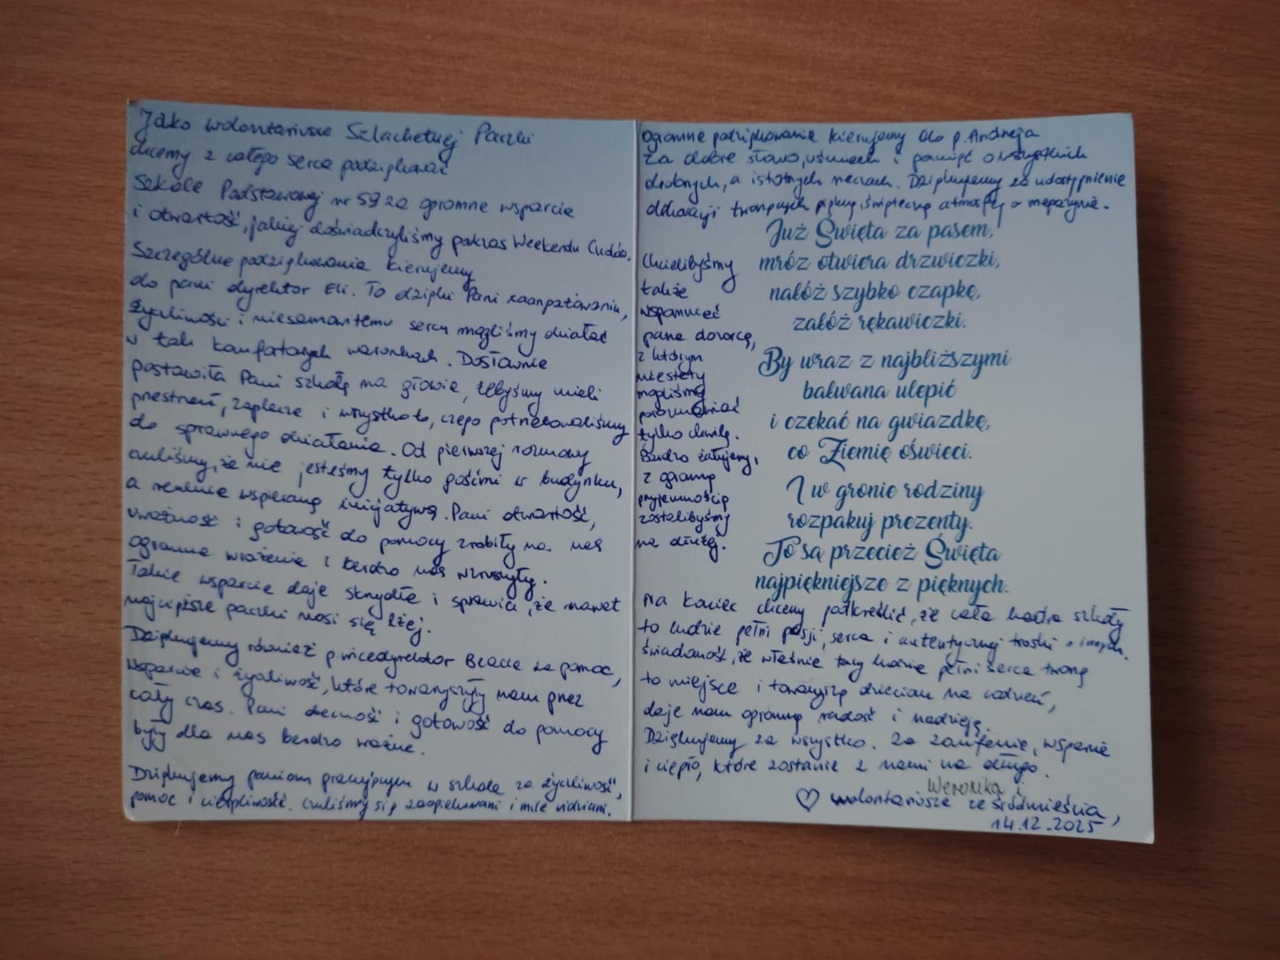 Jako wolontariusze Szlachetnej Paczki
chcemy z całego serca podziękować
Szkole Podstawowej nr 59 za ogromne wsparcie
i otwartość, jakiej doświadczyliśmy podczas Weekendu Cudów.
Szczególne podziękowania kierujemy
do pani dyrektor Eli. To dzięki Pani zaangażowaniu,
życzliwości i niesamowitemu sercu mogliśmy działać
w tak komfortowych warunkach. Dosłownie
postawiła Pani szkołę na głowie, żebyśmy mieli
przestrzeń, zaplecze i wszystko to, czego potrzebowaliśmy
do sprawnego działania. Od pierwszej rozmowy
czuliśmy, że nie jesteśmy tylko gośćmi w budynku,
a realnie wspieraną inicjatywą. Pani otwartość,
uważność i gotowość do pomocy zrobiły na nas
ogromne wrażenie i bardzo nas wzruszyły.
Takie wsparcie daje skrzydła i sprawia, że nawet
najcięższe paczki nosi się lżej.
Dziękujemy również p. wicedyrektor Beacie za pomoc,
wsparcie i życzliwość, które towarzyszyły nam przez
cały czas. Pani obecność i gotowość do pomocy
były dla nas bardzo ważne.
Dziękujemy paniom pracującym w szkole za życzliwość,
pomoc i cierpliwość. Czuliśmy się zaopiekowani i mile widziani.
Ogromne podziękowanie kierujemy do p. Andrzeja
za dobre słowo, uśmiech i pamięć o wszystkich
drobnych, a istotnych rzeczach. Dziękujemy za udostępnienie
dekoracji tworzących piękną świąteczną atmosferę w magazynie.
Chcielibyśmy
także
wspomnieć
pana dozorcę,
z którym
niestety
mogliśmy
porozmawiać
tylko chwilę.
Bardzo żałujemy,
z ogromną
przyjemnością
zostalibyśmy
na dłużej.
Już Święta za pasem,
mróz otwiera drzwiczki,
nałóż szybko czapkę,
załóż rękawiczki.
By wraz z najbliższymi
bałwana ulepić
i czekać na gwiazdkę,
co Ziemię oświeci.
I w gronie rodziny
rozpakuj prezenty.
To są przecież Święta
najpiękniejsze z pięknych.
Na koniec chcemy podkreślić, że cała kadra szkoły
to ludzie pełni pasji, serca i autentycznej troski o innych.
Świadomość, że właśnie tacy ludzie pełni serca tworzą
to miejsce i towarzyszą dzieciom na codzień,
daje nam ogromną radość i nadzieję.
Dziękujemy za wszystko. Za zaufanie, wsparcie
i ciepło, które zostanie z nami na długo.
Weronika i
♡ wolontariusze ze śródmieścia,
14.12.2025